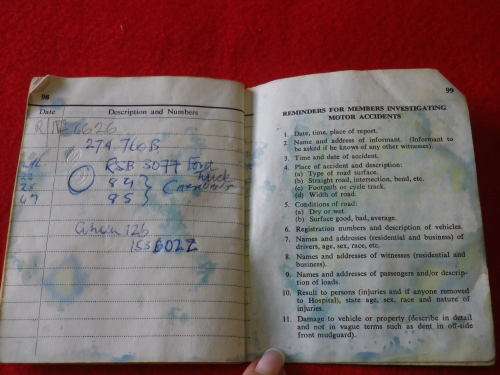 98
Date Description and Numbers
6626
274.760B
RSB 3077 Ford
truck
84 }
85 }
47
126
153 6022
99
REMINDERS FOR MEMBERS INVESTIGATING
MOTOR ACCIDENTS
1. Date, time, place of report.
2. Name and address of informant. (Informant to
be asked if he knows of any other witnesses).
3. Time and date of accident.
4. Place of accident and description:
(a) Type of road surface.
(b) Straight road, intersection, bend, etc.
(c) Footpath or cycle track.
(d) Width of road.
5. Conditions of road:
(a) Dry or wet.
(b) Surface good, bad, average.
6. Registration numbers and description of vehicles.
7. Names and addresses (residential and business) of
drivers, age, sex, race, etc.
8. Names and addresses of witnesses (residential and
business).
9. Names and addresses of passengers and/or descrip-
tion of loads.
10. Result to persons (injuries and if anyone removed
to Hospital), state age, sex, race and nature of
injuries.
11. Damage to vehicle or property (describe in detail
and not in vague terms such as dent in off-side
front mudguard).